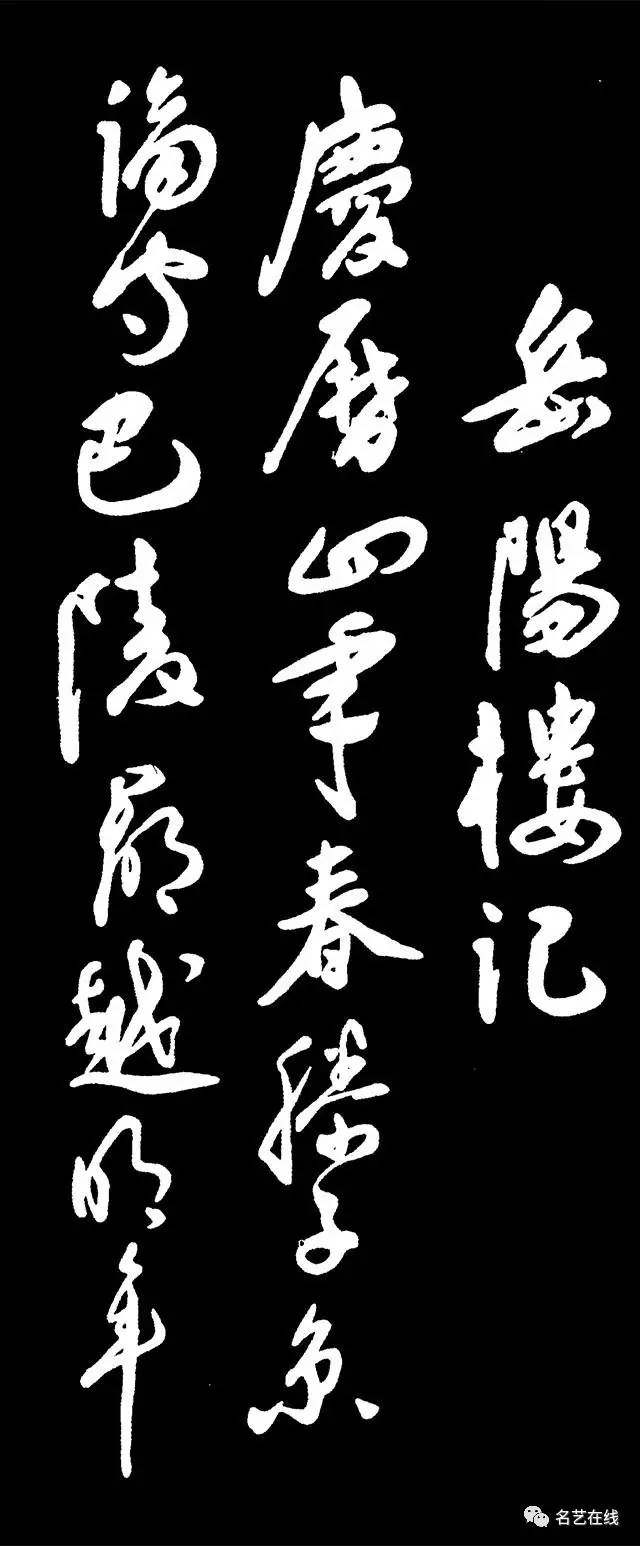 岳陽樓记
慶曆四年春滕子京
謫守巴陵郡越明年
名艺在线